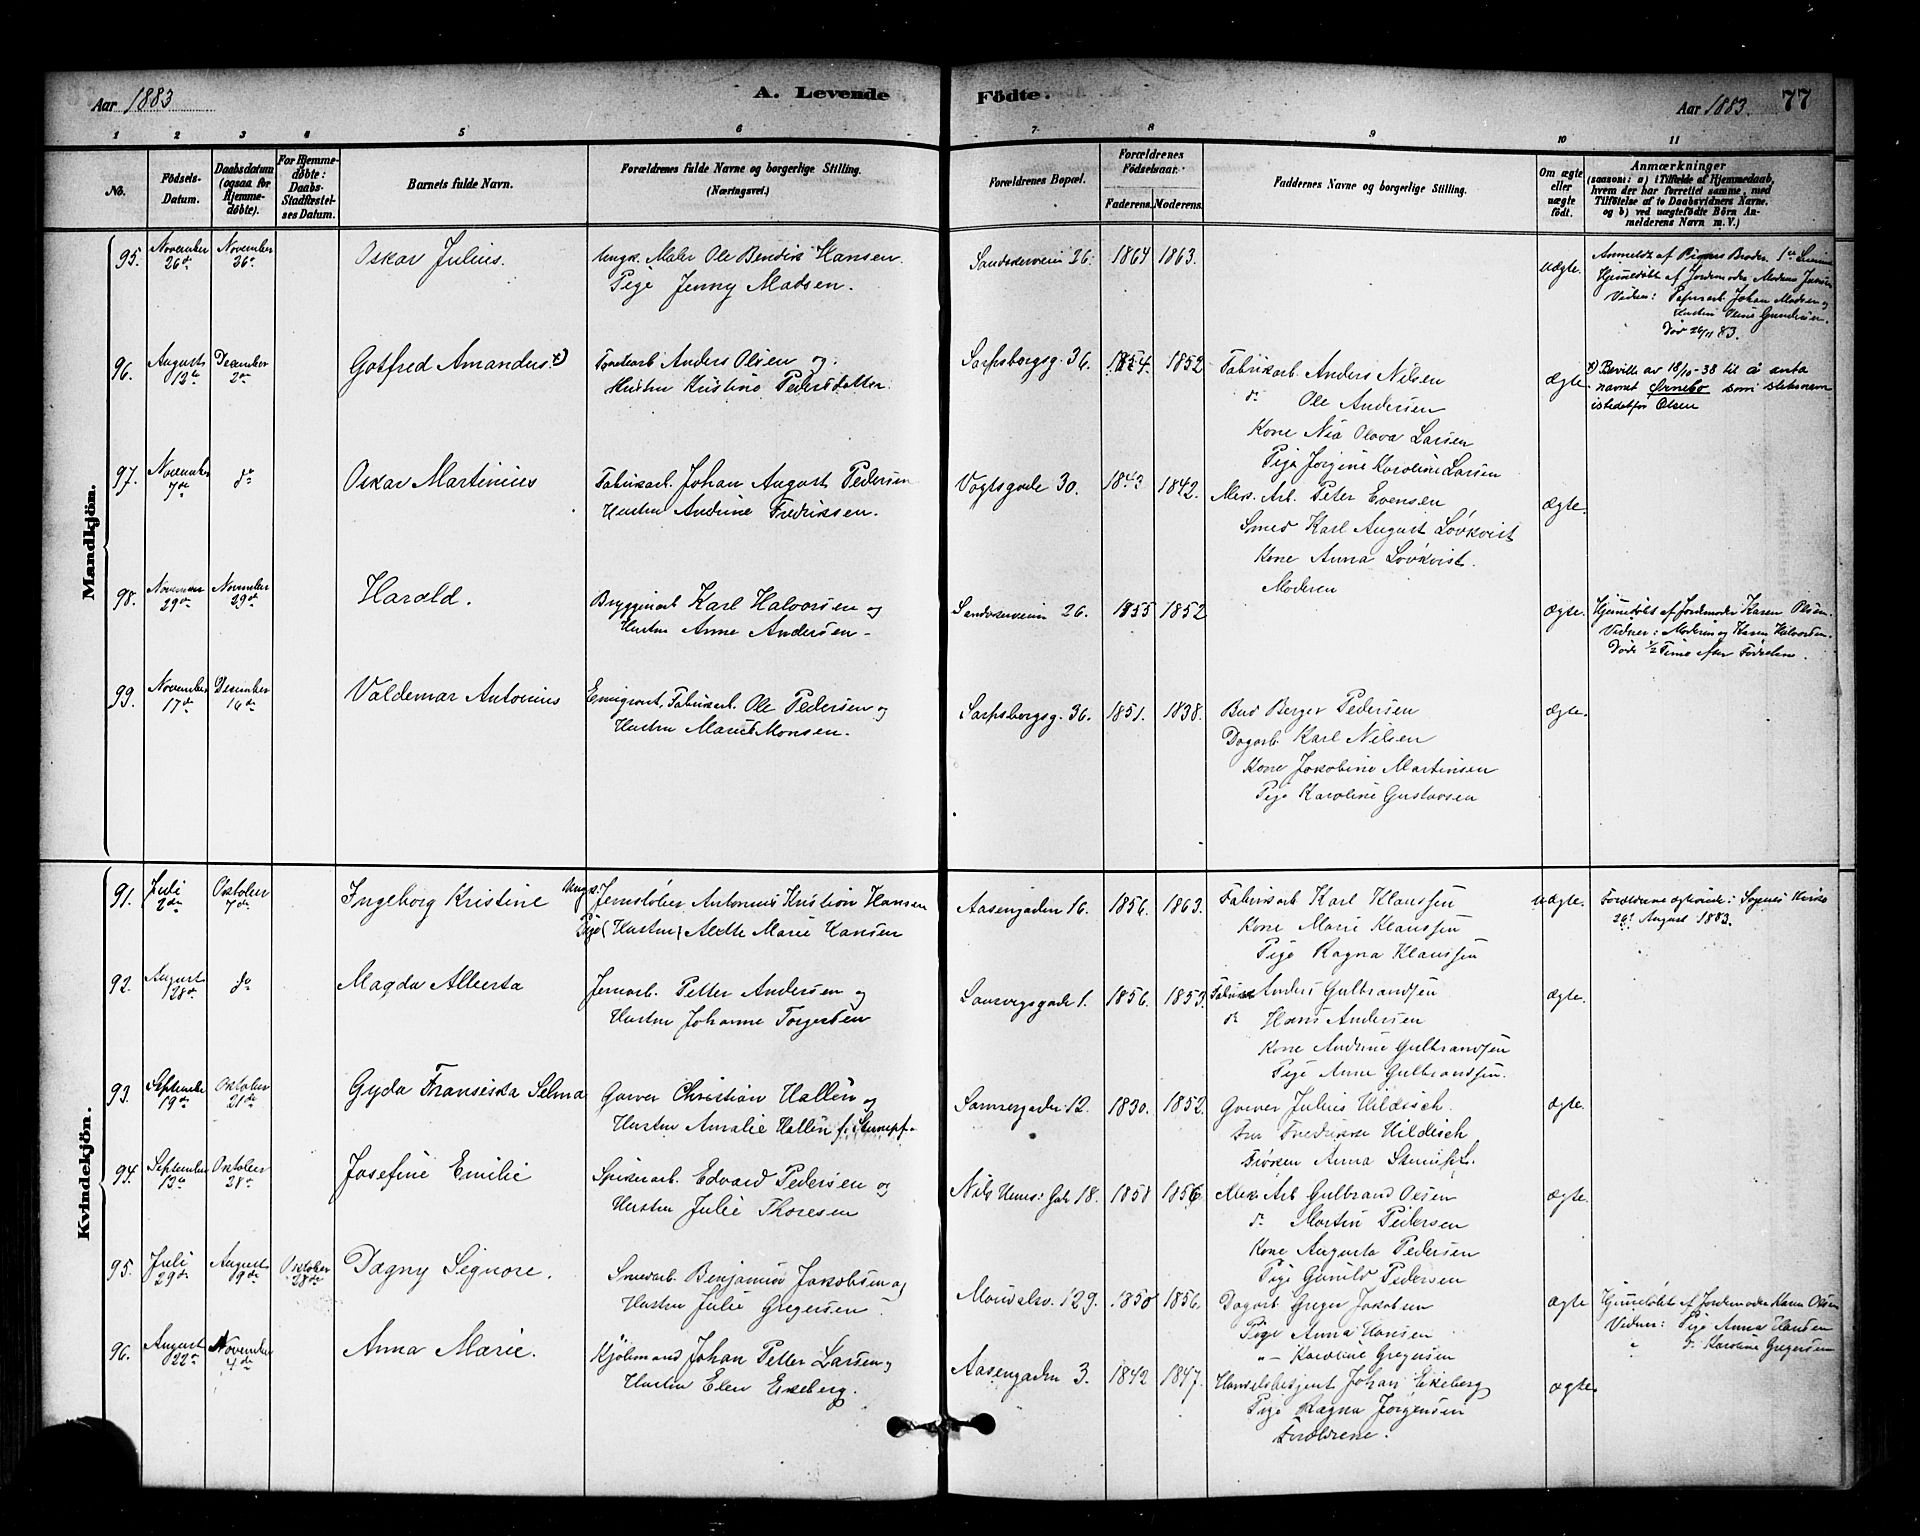 Aar 1883
A. Levende
Födte.
Aar 1883. 77
1 2 3 4 5 6 7 8 9 10 11
No.
Födsels-Datum.
Daabsdatum (ogsaa for Hjemmedøbte).
For Hjemmedøbte: Daabs-Stadfæstelses Datum.
Barnets fulde Navn.
Forældrenes fulde Navne og borgerlige Stilling.
(Næringsvei.)
Forældrenes Bopæl.
Forældrenes Födselsaar.
Faderens. Moderens.
Faddernes Navne og borgerlige Stilling.
Om ægte eller uægte født.
Anmærkninger
(saasom: a) i Tilfælde af Hjemmedaab, hvem der har forrettet samme, med Tilföielse af to Daabsvidners Navne. og b) ved uægtefødte Börn Anmelderens Navn m. V.)
Mandkjön.
95. November 26de November 26de Oskar Julius.
Ungk. Maler Ole Bendix Hansen.
Pige Jenny Madsen.
Sandakerveien 26. 1864 1863.
uægte.
Anmeldt af Pigens Broder.
Hjemmedøbt af Jordemoder
Vidner: Papirarb. Johan Madsen og
Død 26/11 83.
96. August 12te December 2den Gotfred Amandus x)
Anders Olsen og
Hustru Kristine Pedersdatter.
Sarpsborgsg. 36. 1854. 1852
Fabrikarb. Anders Nilsen
do Ole Andersen
Kone Nea Olava Larsen
Pige Jørgine Karoline Larsen
ægte.
x) Beville av 18/10-38 til å anta
navnet Ørnebo som slektsnavn
istedetfor Olsen
97. November 7de do Oskar Martinius
Fabrikarb. Johan August Pedersen
Hustru Andrine Fredriksen.
Vogtsgade 30. 1843 1842.
Mek. Arb. Peter Evensen
Smed Karl August Lövkvist
Kone Anna Lövkvist.
Moderen
ægte.
98. November 29de November 29de Harald.
Bryggeriarb. Karl Halvorsen og
Hustru Anne Andersen
Sandakerveien 26. 1855 1852
ægte.
Hjemmedøbt af Jordemoder Karen Olsen.
Vidner: Moderen og Karen Halvorsen.
Død 1/2 Time efter Fødselen.
99. November 17de December 16de Valdemar Antonius
Emigrant, Fabrikarb. Ole Pedersen og
Hustru Marie Monsen.
Sarpsborgsg. 36. 1851. 1838.
Bud Berger Pedersen
Dagarb. Karl Nilsen
Kone Jakobine Martinsen
Pige Karoline Gustavsen
ægte.
Kvindekjön.
91. Juli 2den Oktober 7de Ingeborg Kristine
Ungk. Jernstøber Antonius Kristian Hansen
Pige (Hustru) Alette Marie Hansen
Aasengaden 16. 1856. 1863.
Fabrikarb Karl Klaussen
Kone Marie Klaussen
Pige Ragna Klaussen
uægte.
Forældrene ægteviede i Sagenes Kirke
26de August 1883.
92. August 28de do Magda Alberta
Jernarb. Petter Andersen og
Hustru Johanne Torgersen
1. 1856. 1853.
Fabrikarb Anders Gulbrandsen
do Hans Andersen
Kone Andrine Gulbrandsen
Pige Anne Gulbrandsen.
ægte.
93. September 19de Oktober 21de Gyda Fransiska Selma
Garver Christian Hallén og
Hustru Amalie Hallén f. Stumpf.
Sannergaden 12. 1830. 1852.
Garver Julius Hildisch.
Fru Fredrikke Hildisch
Frøken Anna Stumpf.
ægte.
94. September 13de Oktober 28de Josefine Emilie
Spikerarb. Edvard Pedersen og
Hustru Julie Thoresen
18. 1858 1856
Mek. Arb Gulbrand Olsen
do Martin Pedersen
Kone Augusta Pedersen
Pige Gunild Pedersen
ægte.
95. Juli 29de August 19de Oktober 28de Dagny Signore.
Smedarb. Benjamin Jakobsen og
Hustru Julie Gregersen
Maridalsv. 129. 1858 1856.
Dagarb. Greger Jakobsen
Pige Anna Hansen
"– Karoline Gregersen
ægte
Hjemmedøbt af Jordemoder Karen Olsen
Vidner: Pige Anna Hansen
" do Karoline Gregersen
96. August 22de November 4de Anna Marie.
Kjølmand Johan Petter Larsen og
Hustru Elen Ekeberg.
Aasengaden 3. 1842 1847.
Handelsbetjent Johan Ekeberg
Pige Ragna Jørgensen
Forældrene.
ægte.